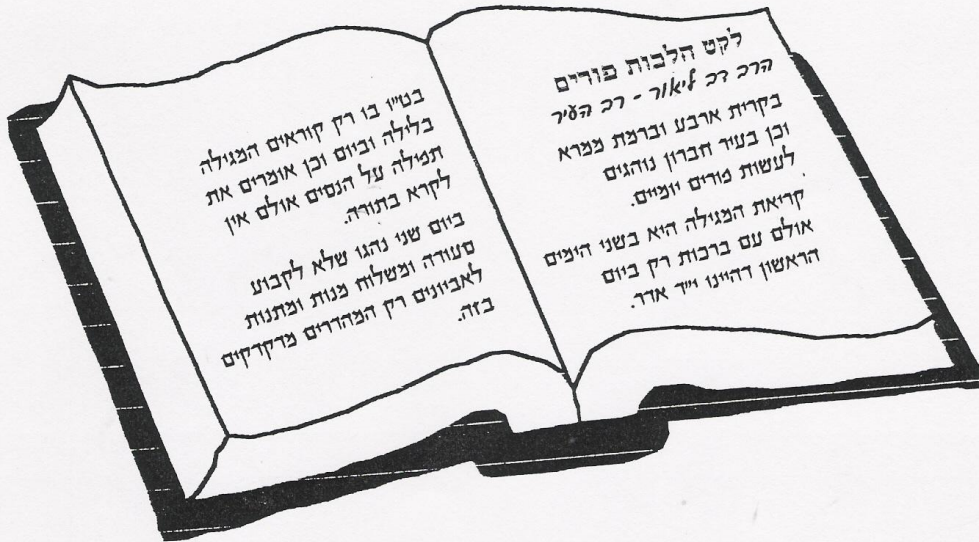 לקט הלכות פורים
הרב דב ליאור - רב העיר
בקרית ארבע וברמת ממרא
וכן בעיר חברון נוהגים
לעשות פורים יומיים.
קריאת המגילה היא בשני הימים
אולם עם ברכות רק ביום
הראשון דהיינו י״ד אדר.
בט״ו בו רק קוראים המגילה
בלילה וביום וכן אומרים את
תפילה על הנסים אולם אין
לקרא בתורה.
ביום שני נהגו שלא לקבוע
סעודה ומשלוח מנות ומתנות
לאביונים רק המהדרים מדקדקים
בזה.